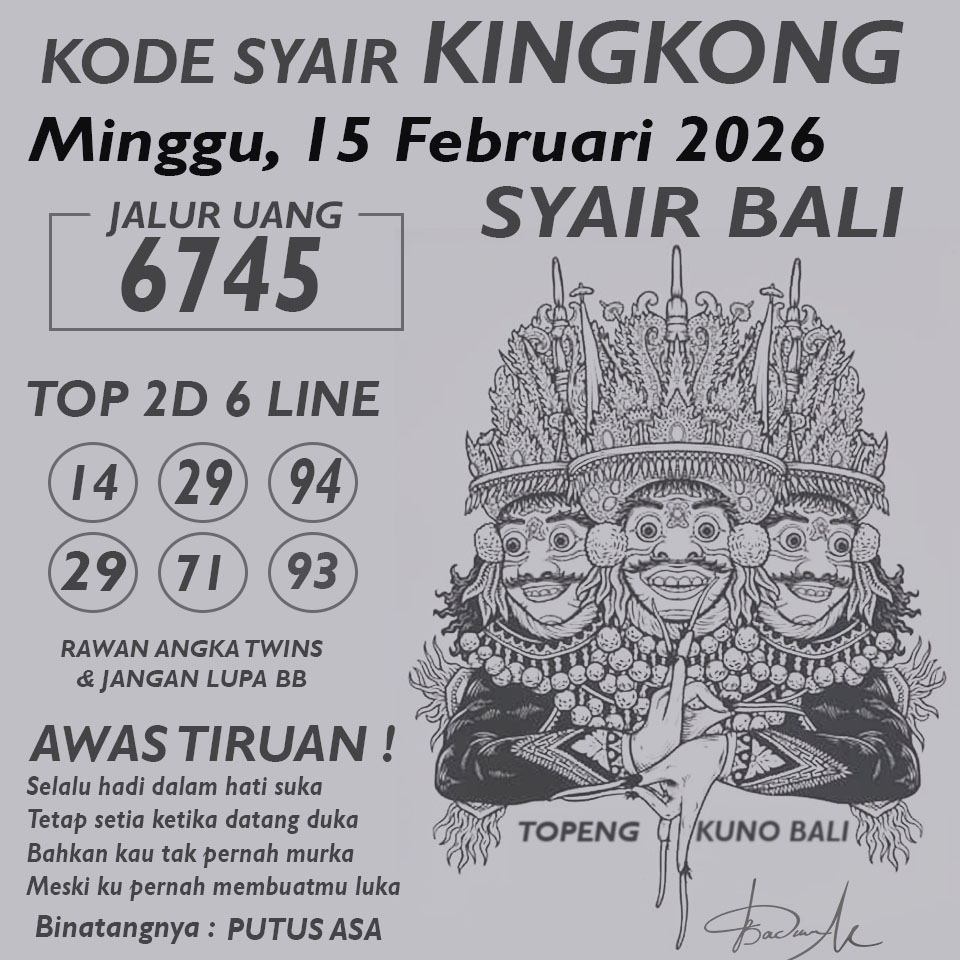 KODE SYAIR KINGKONG
Minggu, 15 Februari 2026
SYAIR BALI
JALUR UANG
6745
TOP 2D 6 LINE
14 29 94
29 71 93
RAWAN ANGKA TWINS
& JANGAN LUPA BB
AWAS TIRUAN !
Selalu hadi dalam hati suka
Tetap setia ketika datang duka
Bahkan kau tak pernah murka
Meski ku pernah membuatmu luka
Binatangnya : PUTUS ASA
TOPENG KUNO BALI